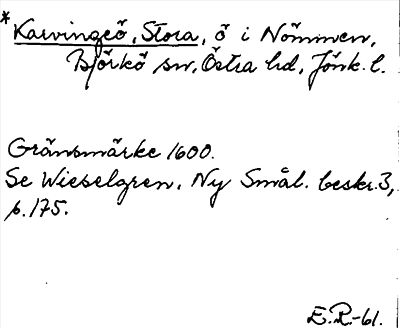 *Karvingeö, Stora, ö i Nömmen,
Björkö sn, Östra hd, Jönk. l.
Gränsmärke 1600.
Se Wieselgren, Ny Smål. beskr. 3,
s. 175.
E.R.-61.